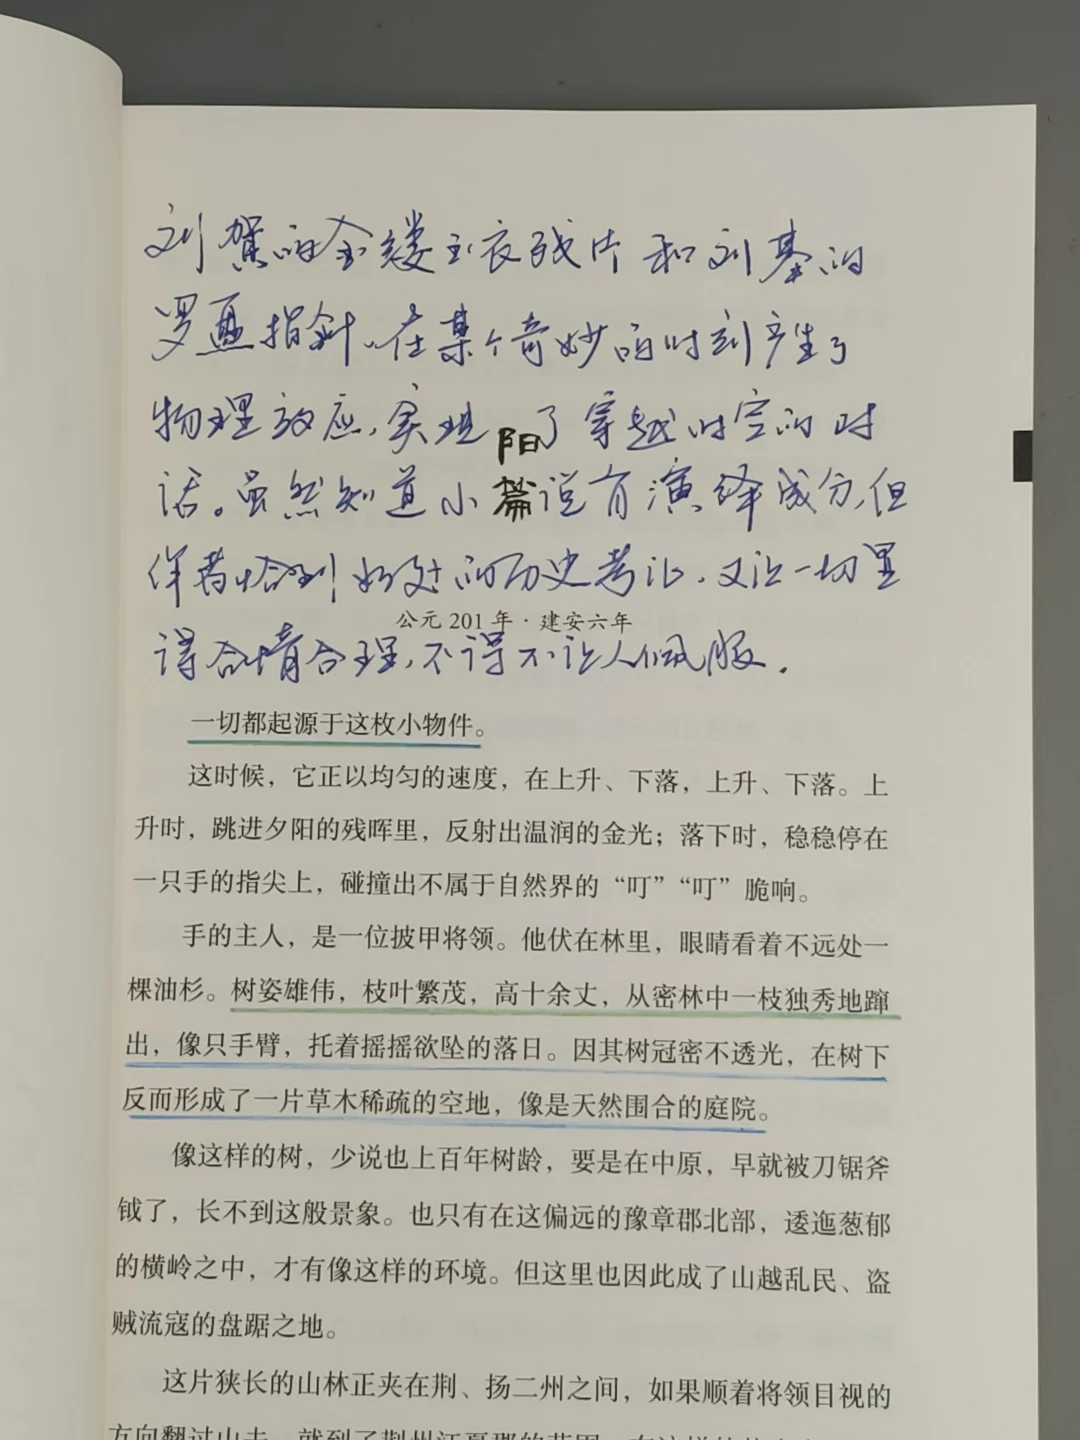 刘贺的金缕玉衣残片和刘基的
罗盘指针。在某个奇妙的时刻产生了
物理效应,实现了穿越时空的对
阳
话。虽然知道小说有演绎成分,但
篇
伴着恰到好处的历史考证,又让一切显
公元 201 年·建安六年
得合情合理,不得不让人佩服.
一切都起源于这枚小物件。
这时候，它正以均匀的速度，在上升、下落，上升、下落。上
升时，跳进夕阳的残晖里，反射出温润的金光；落下时，稳稳停在
一只手的指尖上，碰撞出不属于自然界的“叮”“叮”脆响。
手的主人，是一位披甲将领。他伏在林里，眼睛看着不远处一
棵油杉。树姿雄伟，枝叶繁茂，高十余丈，从密林中一枝独秀地蹿
出，像只手臂，托着摇摇欲坠的落日。因其树冠密不透光，在树下
反而形成了一片草木稀疏的空地，像是天然围合的庭院。
像这样的树，少说也上百年树龄，要是在中原，早就被刀锯斧
钺了，长不到这般景象。也只有在这偏远的豫章郡北部，逶迤葱郁
的横岭之中，才有像这样的环境。但这里也因此成了山越乱民、盗
贼流寇的盘踞之地。
这片狭长的山林正夹在荆、扬二州之间，如果顺着将领目视的
方向翻过山去，就到了荆州江夏郡的范围。在这样的